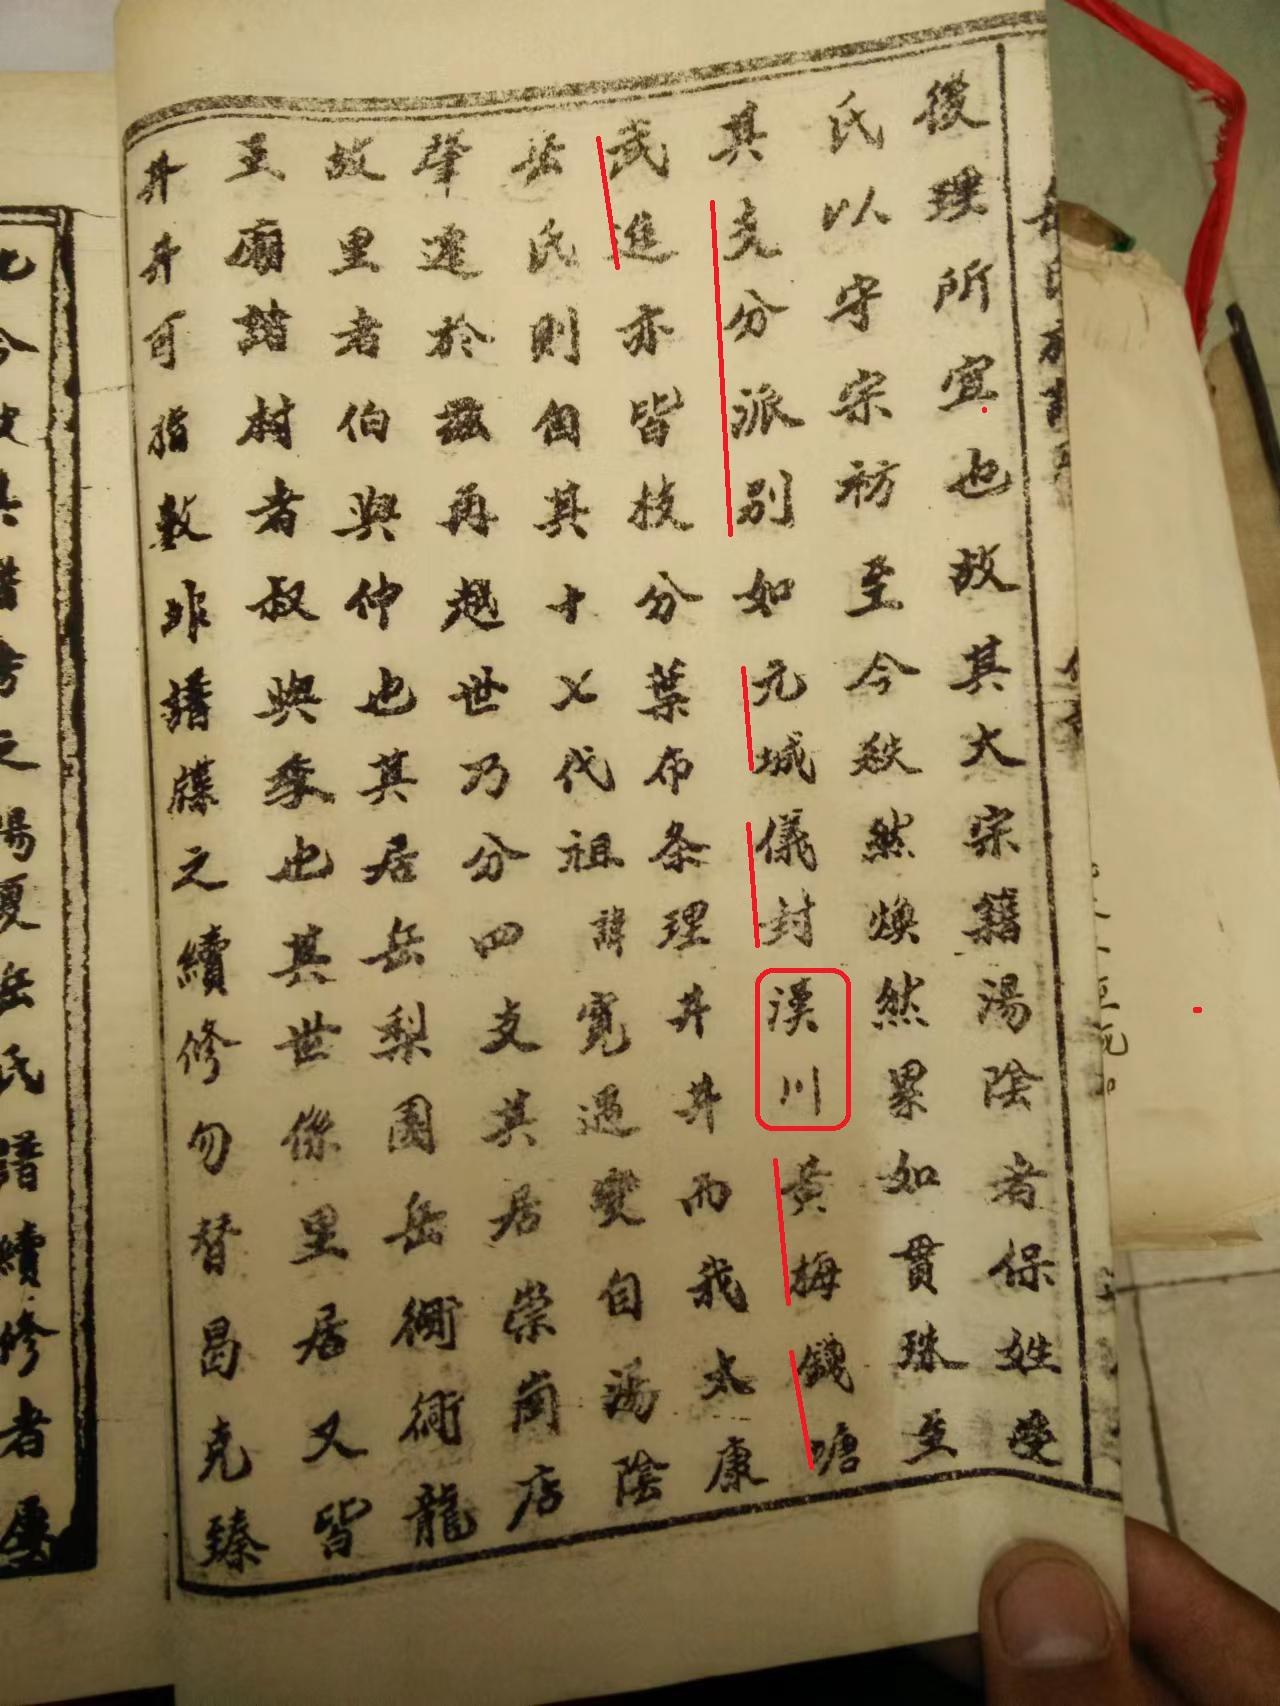 後理所宜也故其大宗籍湯陰者保姓受
氏以守宗祊至今秩然煥然累如貫珠至
其支分派別如元城儀封漢川黃梅錢塘
武進亦皆枝分葉布条理井井而我太康
岳氏則自其十乂代祖諱寬遇變自湯陰
肇遷於茲再越世乃分四支其居崇崗店
故里者伯與仲也其居岳梨園岳衕衕龍
王廟諸村者叔與季也其世係里居又皆
井井可指數非譜牒之續修勿替曷克臻